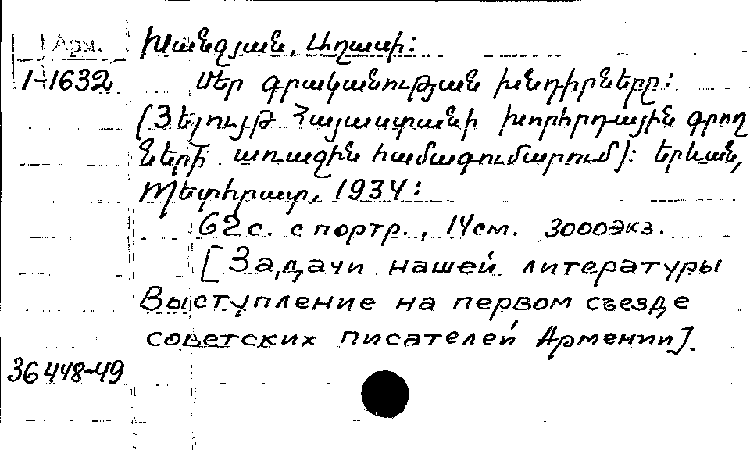 Арм.
1-1632
Խանջյան, Աղասի:
Մեր գրականության խնդիրները:
(Զեկույց Հայաստանի խորհրդային գրող
ների առաջին համագումարում): Երևան,
Պետհրատ, 1934:
62 с. с портр., 14 см. 3000 экз.
[Задачи нашей литературы
Выступление на первом съезде
советских писателей Армении].
36448-49